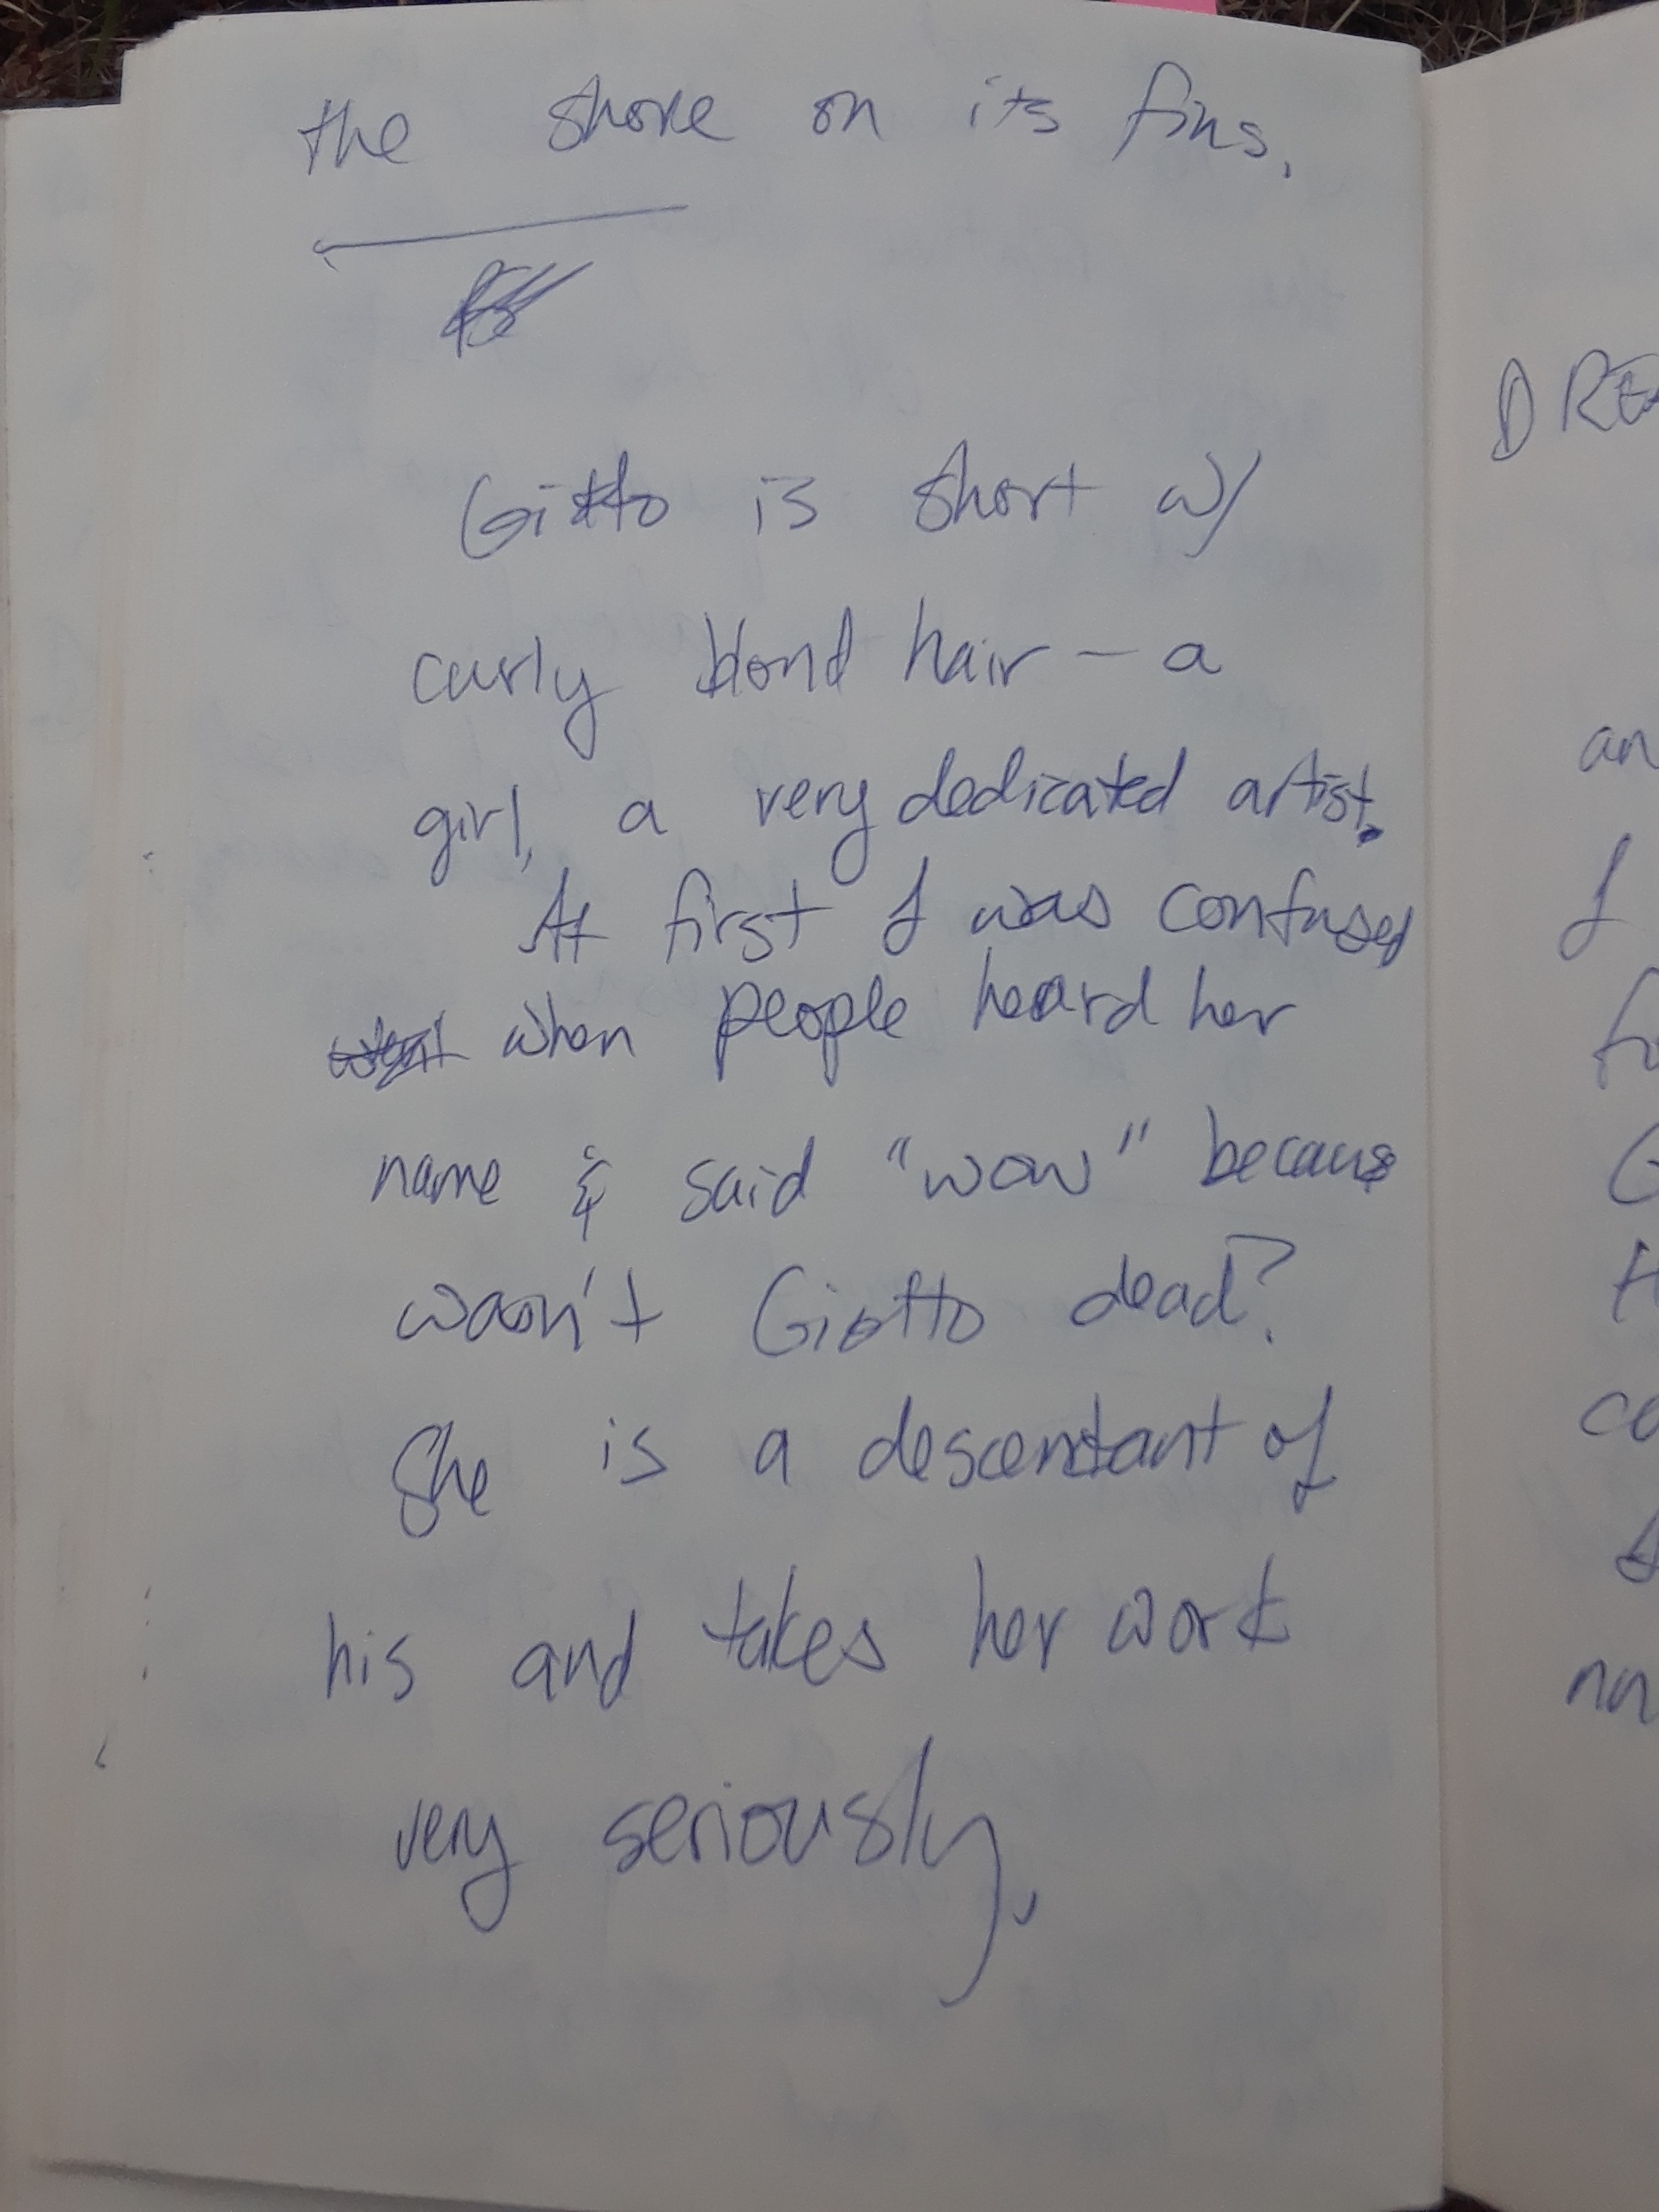 the shore on its fins.
Giotto is short w/
curly blond hair – a
girl, a very dedicated artist.
At first I was confused
when people heard her
name & said "wow" because
wasn't Giotto dead?
She is a descendant of
his and takes her work
very seriously.
DRE
an
I
fo
G
H
co
nn